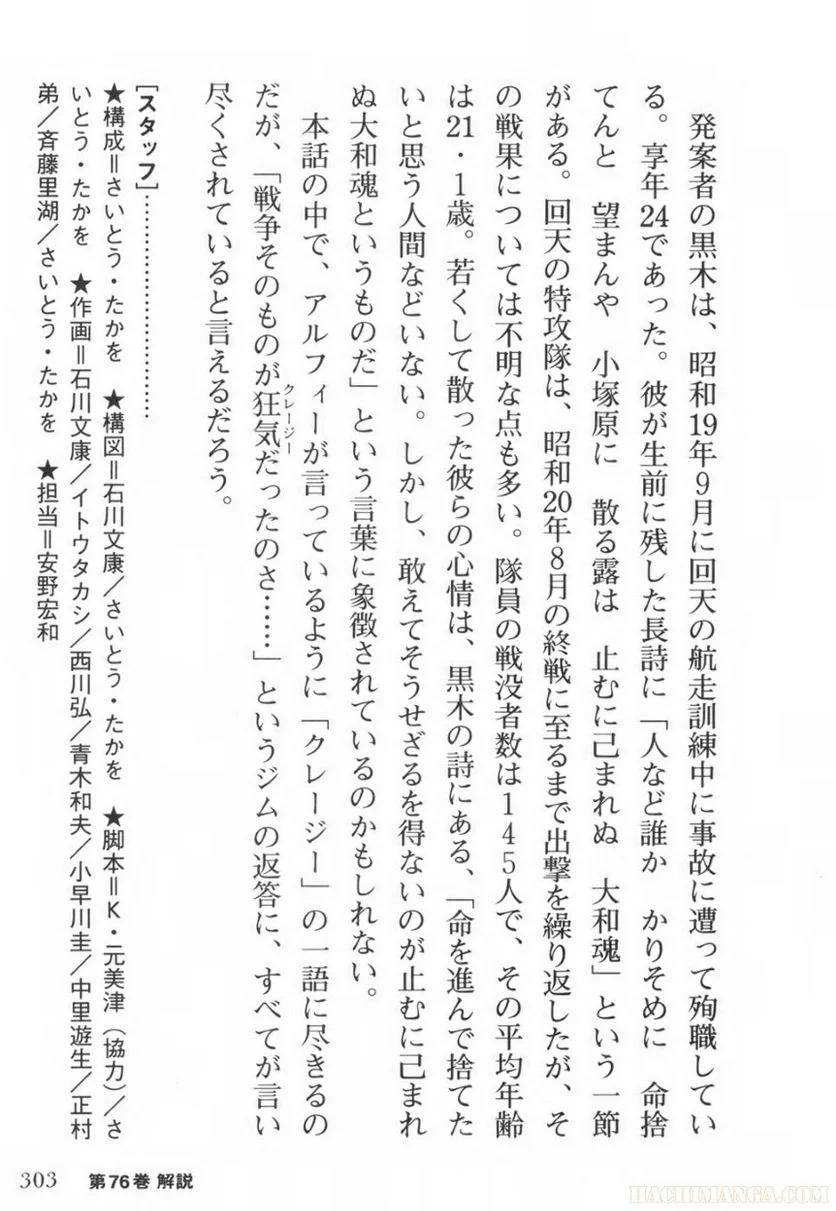 発案者の黒木は、昭和19年9月に回天の航走訓練中に事故に遭って殉職してい
る。享年24であった。彼が生前に残した長詩に「人など誰か　かりそめに　命捨
てんと　望まんや　小塚原に　散る露は　止むに己まれぬ　大和魂」という一節
がある。回天の特攻隊は、昭和20年8月の終戦に至るまで出撃を繰り返したが、そ
の戦果については不明な点も多い。隊員の戦没者数は145人で、その平均年齢
は21・1歳。若くして散った彼らの心情は、黒木の詩にある、「命を進んで捨てた
いと思う人間などいない。しかし、敢えてそうせざるを得ないのが止むに己まれ
ぬ大和魂というものだ」という言葉に象徴されているのかもしれない。
本話の中で、アルフィーが言っているように「クレージー」の一語に尽きるの
だが、「戦争そのものが狂気だったのさ……」というジムの返答に、すべてが言い
クレージー
尽くされていると言えるだろう。
[スタッフ]…………………………
★構成＝さいとう・たかを　★構図＝石川文康／さいとう・たかを　★脚本＝K・元美津（協力）／さ
いとう・たかを　★作画＝石川文康／イトウタカシ／西川弘／青木和夫／小早川圭／中里遊生／正村
弟／斉藤里湖／さいとう・たかを　★担当＝安野宏和
303　第76巻 解説
HACHIMANGA.COM